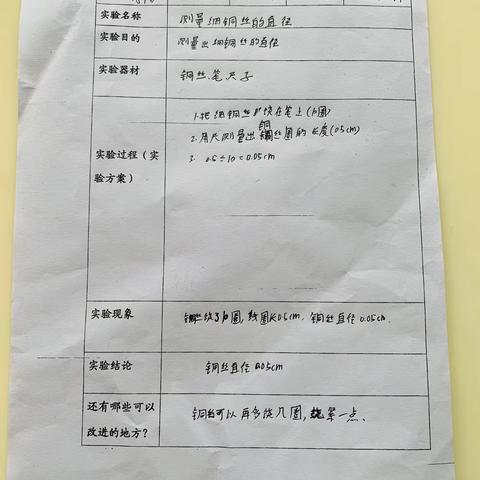 实验名称 测量细铜丝的直径
实验目的 测量出细铜丝的直径
实验器材 铜丝、笔、尺子
1.把细铜丝绕在笔上(10圈)
铜
2.用尺测量出丝圈的长度(0.5cm)
实验过程(实
验方案)
3. 0.5÷10=0.05cm
实验现象 铜丝绕了10圈,线圈长0.5cm,铜丝直径0.05cm.
实验结论 铜丝直径0.05cm
还有哪些可以
改进的地方?
铜丝可以再多绕几圈,绕紧一点.